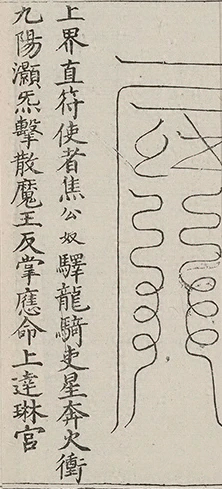 上界直符使者焦公奴驛龍騎吏星奔火衝
九陽灝炁擊散魔王反掌應命上達琳宮